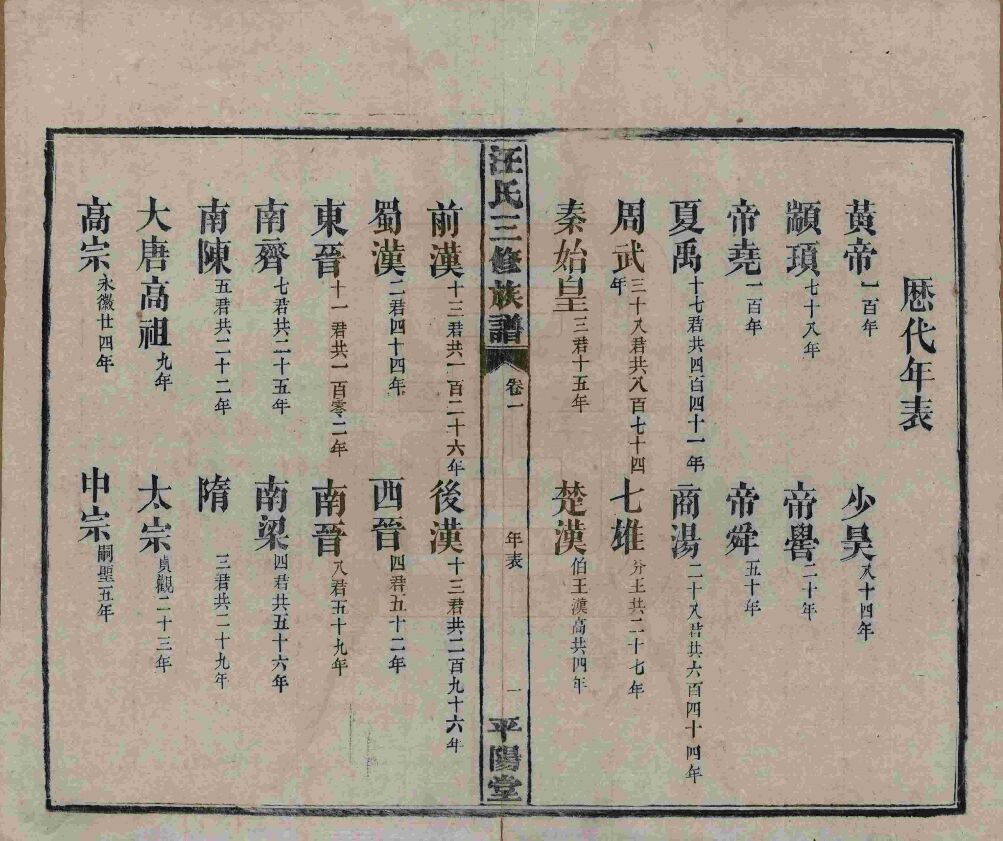 歴代年表
黃帝一百年
少昊八十四年
顓頊七十八年
帝嚳二十年
帝堯一百年
帝舜五十年
夏禹十七君共四百四十一年
商湯二十八君共六百四十四年
周武三十八君共八百七十四年
七雄分王共二十七年
秦始皇三君十五年
楚漢伯王漢高共四年
汪氏三修族譜
卷一
年表
一
平陽堂
前漢十三君共一百二十六年
後漢十三君共二百九十六年
蜀漢二君四十四年
西晉四君五十二年
東晉十一君共一百零二年
南晉八君五十九年
南齊七君共二十五年
南梁四君共五十六年
南陳五君共二十二年
隋三君共二十九年
大唐高祖九年
太宗貞觀二十三年
高宗永徽廿四年
中宗嗣聖五年